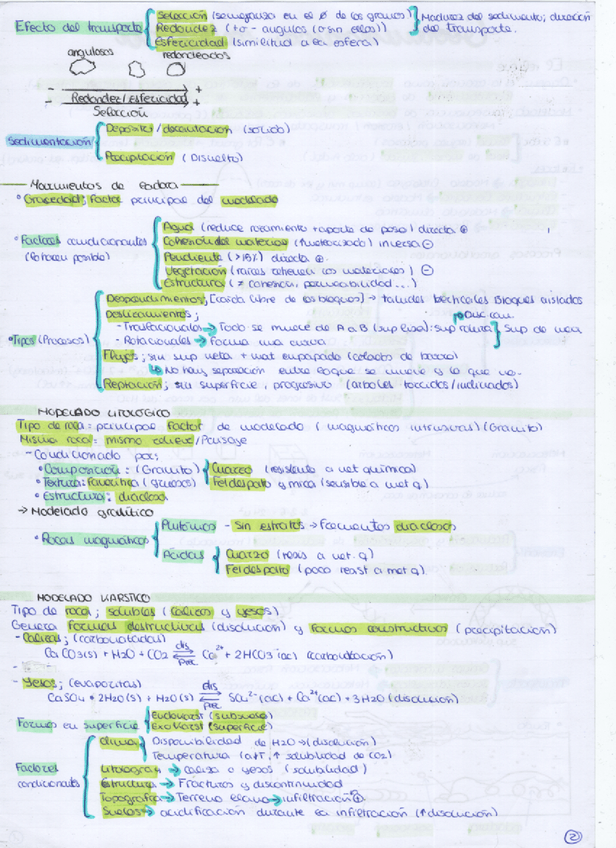 Efecto del transporte
Selección (semejanza en el Ø de los granos)
Redondez (+o- angulos (o sin ellos))
Esfericidad (similitud a la esfera)
Madurez del sedimento; duración del transporte.
angulosos redondeados
- +
Redondez/Esfericidad
- +
Selección
Sedimentación
Deposito/decantación (solido)
Precipitación (Disuelto)
Movimientos de ladera
• Gravedad; Factor principal del modelado
• Factores condicionantes (lo hacen posible)
Agua (reduce rozamiento + aporte de peso) directa ⊕
Cohesión del material (fracturado) inversa ⊖
Pendiente (>15%) directa ⊕
Vegetación (raices retienen los materiales) ⊖
Estructura (≠ cohesion, permeabilidad...)
• Tipos (Procesos)
Desprendimientos; [caída libre de los bloques] → taludes verticales Bloques aislados
Deslizamientos;
- Traslacionales → Todo se mueve de A a B (sup lisa): sup rotura
- Rotacionales → Forma una curva
Flujos; sin sup neta + mat empapado (coladas de barro)
↳ No hay separación entre lo que se mueve y lo que no.
Reptación; sin superficie, progresivo (arboles torcidos/inclinados)
MODELADO LITOLÓGICO
Tipo de roca: principal factor de modelado (magmáticos intrusivas) (Granito)
Misma roca = mismo relieve/Paisaje
- Condicionado por;
• Composición: (Granito)
Cuarzo (resistente a met química)
Feldespato y mica (sensible a met q)
• Textura: Faneritica (gruesos)
• Estructura: diaclasa
→ Modelado granítico
• Rocas magmáticas
Plutónicas - Sin estratos → Formentos diaclasas
Ácidas
Cuarzo (resis a met. q)
Feldespato (poco resist a met q)
MODELADO KARSTICO
Tipo de roca; solubles (calizas y yesos)
Genera formas destructivas (disolución) y formas constructivas (precipitación)
- Calizas; (carbonatadas)
CaCO3(s) + H2O + CO2 ⇌ Ca2+ + 2HCO3-(ac) (carbonatación)
dis
prec
- Yesos; (evaporitas)
CaSO4 · 2H2O(s) + H2O(s) ⇌ SO4 2-(ac) + Ca2+(ac) + 3H2O (disolucion)
dis
prec
Formas en superficie
Endokarst (subsuelo)
Exokarst (superficie)
Factores condicionantes
Clima
Disponibilidad de H2O → (disolución)
Temperatura (↓T, ↑ solubilidad de CO2)
Litología → caliza o yesos (solubilidad)
Estructura → Fracturas y discontinuidad
Topografía → Terreno llano → infiltración ⊕
Suelos → acidificación durante la infiltración (↑ disolución)
2